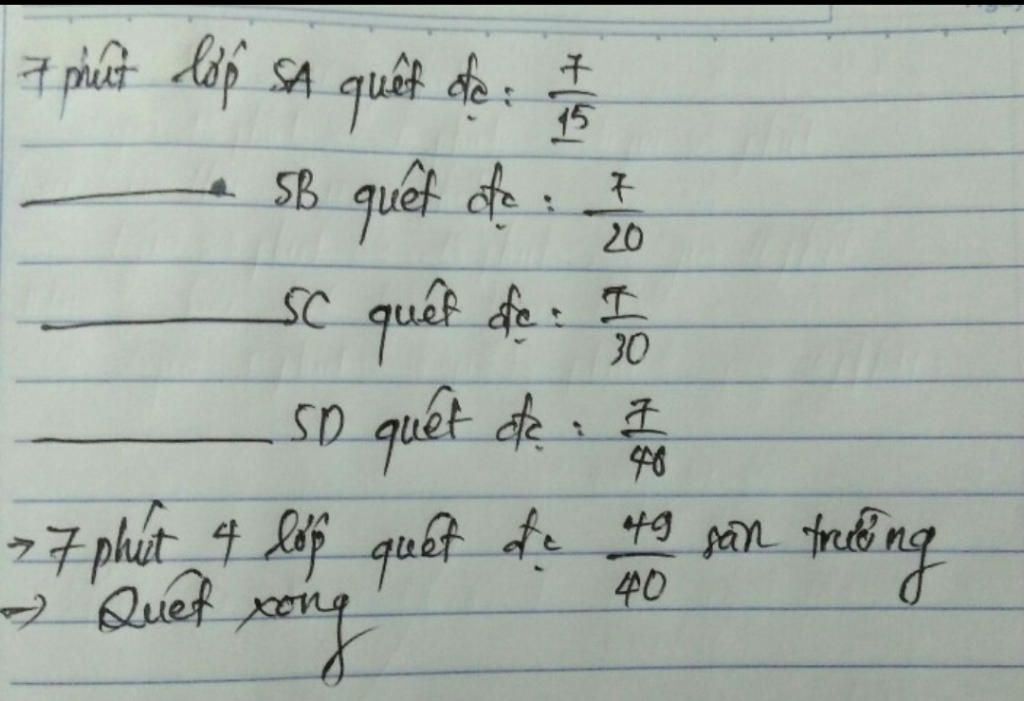 7 phút lớp 5A quét đc : 7/15
5B quét đc : 7/20
5C quét đc : 7/30
5D quét đc : 7/40
→ 7 phút 4 lớp quét đc 49/40 sân trường
→ Quét xong